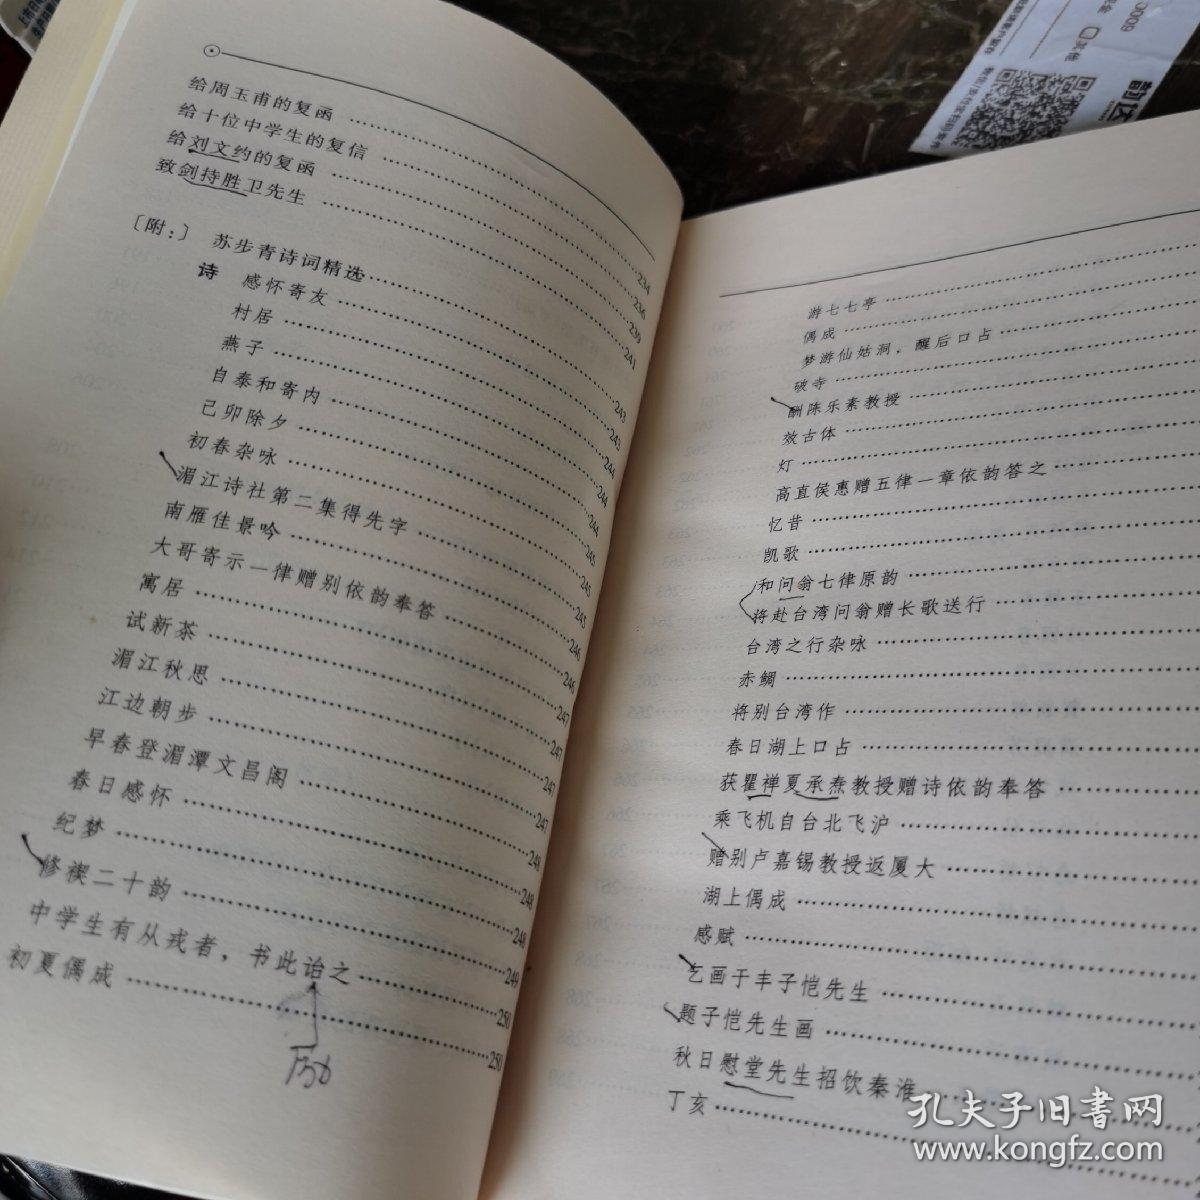 给周玉甫的复函
给十位中学生的复信
给刘文约的复函
致剑持胜卫先生……234
〔附:〕 苏步青诗词精选……236
诗 感怀寄友……239
村居……241
燕子
自泰和寄内……243
己卯除夕……243
初春杂咏……244
湄江诗社第二集得先字……244
南雁佳景吟……244
大哥寄示一律赠别依韵奉答……245
寓居……245
试新茶……245
湄江秋思……246
江边朝步……246
早春登湄潭文昌阁……247
春日感怀……247
纪梦……247
修禊二十韵……247
中学生有从戎者，书此诒之……248
初夏偶成……248
248
249
250
250
游七七亭
偶成
梦游仙姑洞，醒后口占
破寺
酬陈乐素教授
效古体
灯
高直侯惠赠五律一章依韵答之
忆昔
凯歌
和问翁七律原韵
将赴台湾问翁赠长歌送行
台湾之行杂咏
赤鲷
将别台湾作
春日湖上口占
获瞿禅夏承焘教授赠诗依韵奉答
乘飞机自台北飞沪
赠别卢嘉锡教授返厦大
湖上偶成
感赋
乞画于丰子恺先生
题子恺先生画
秋日慰堂先生招饮秦淮
丁亥
孔夫子旧书网
www.kongfz.com